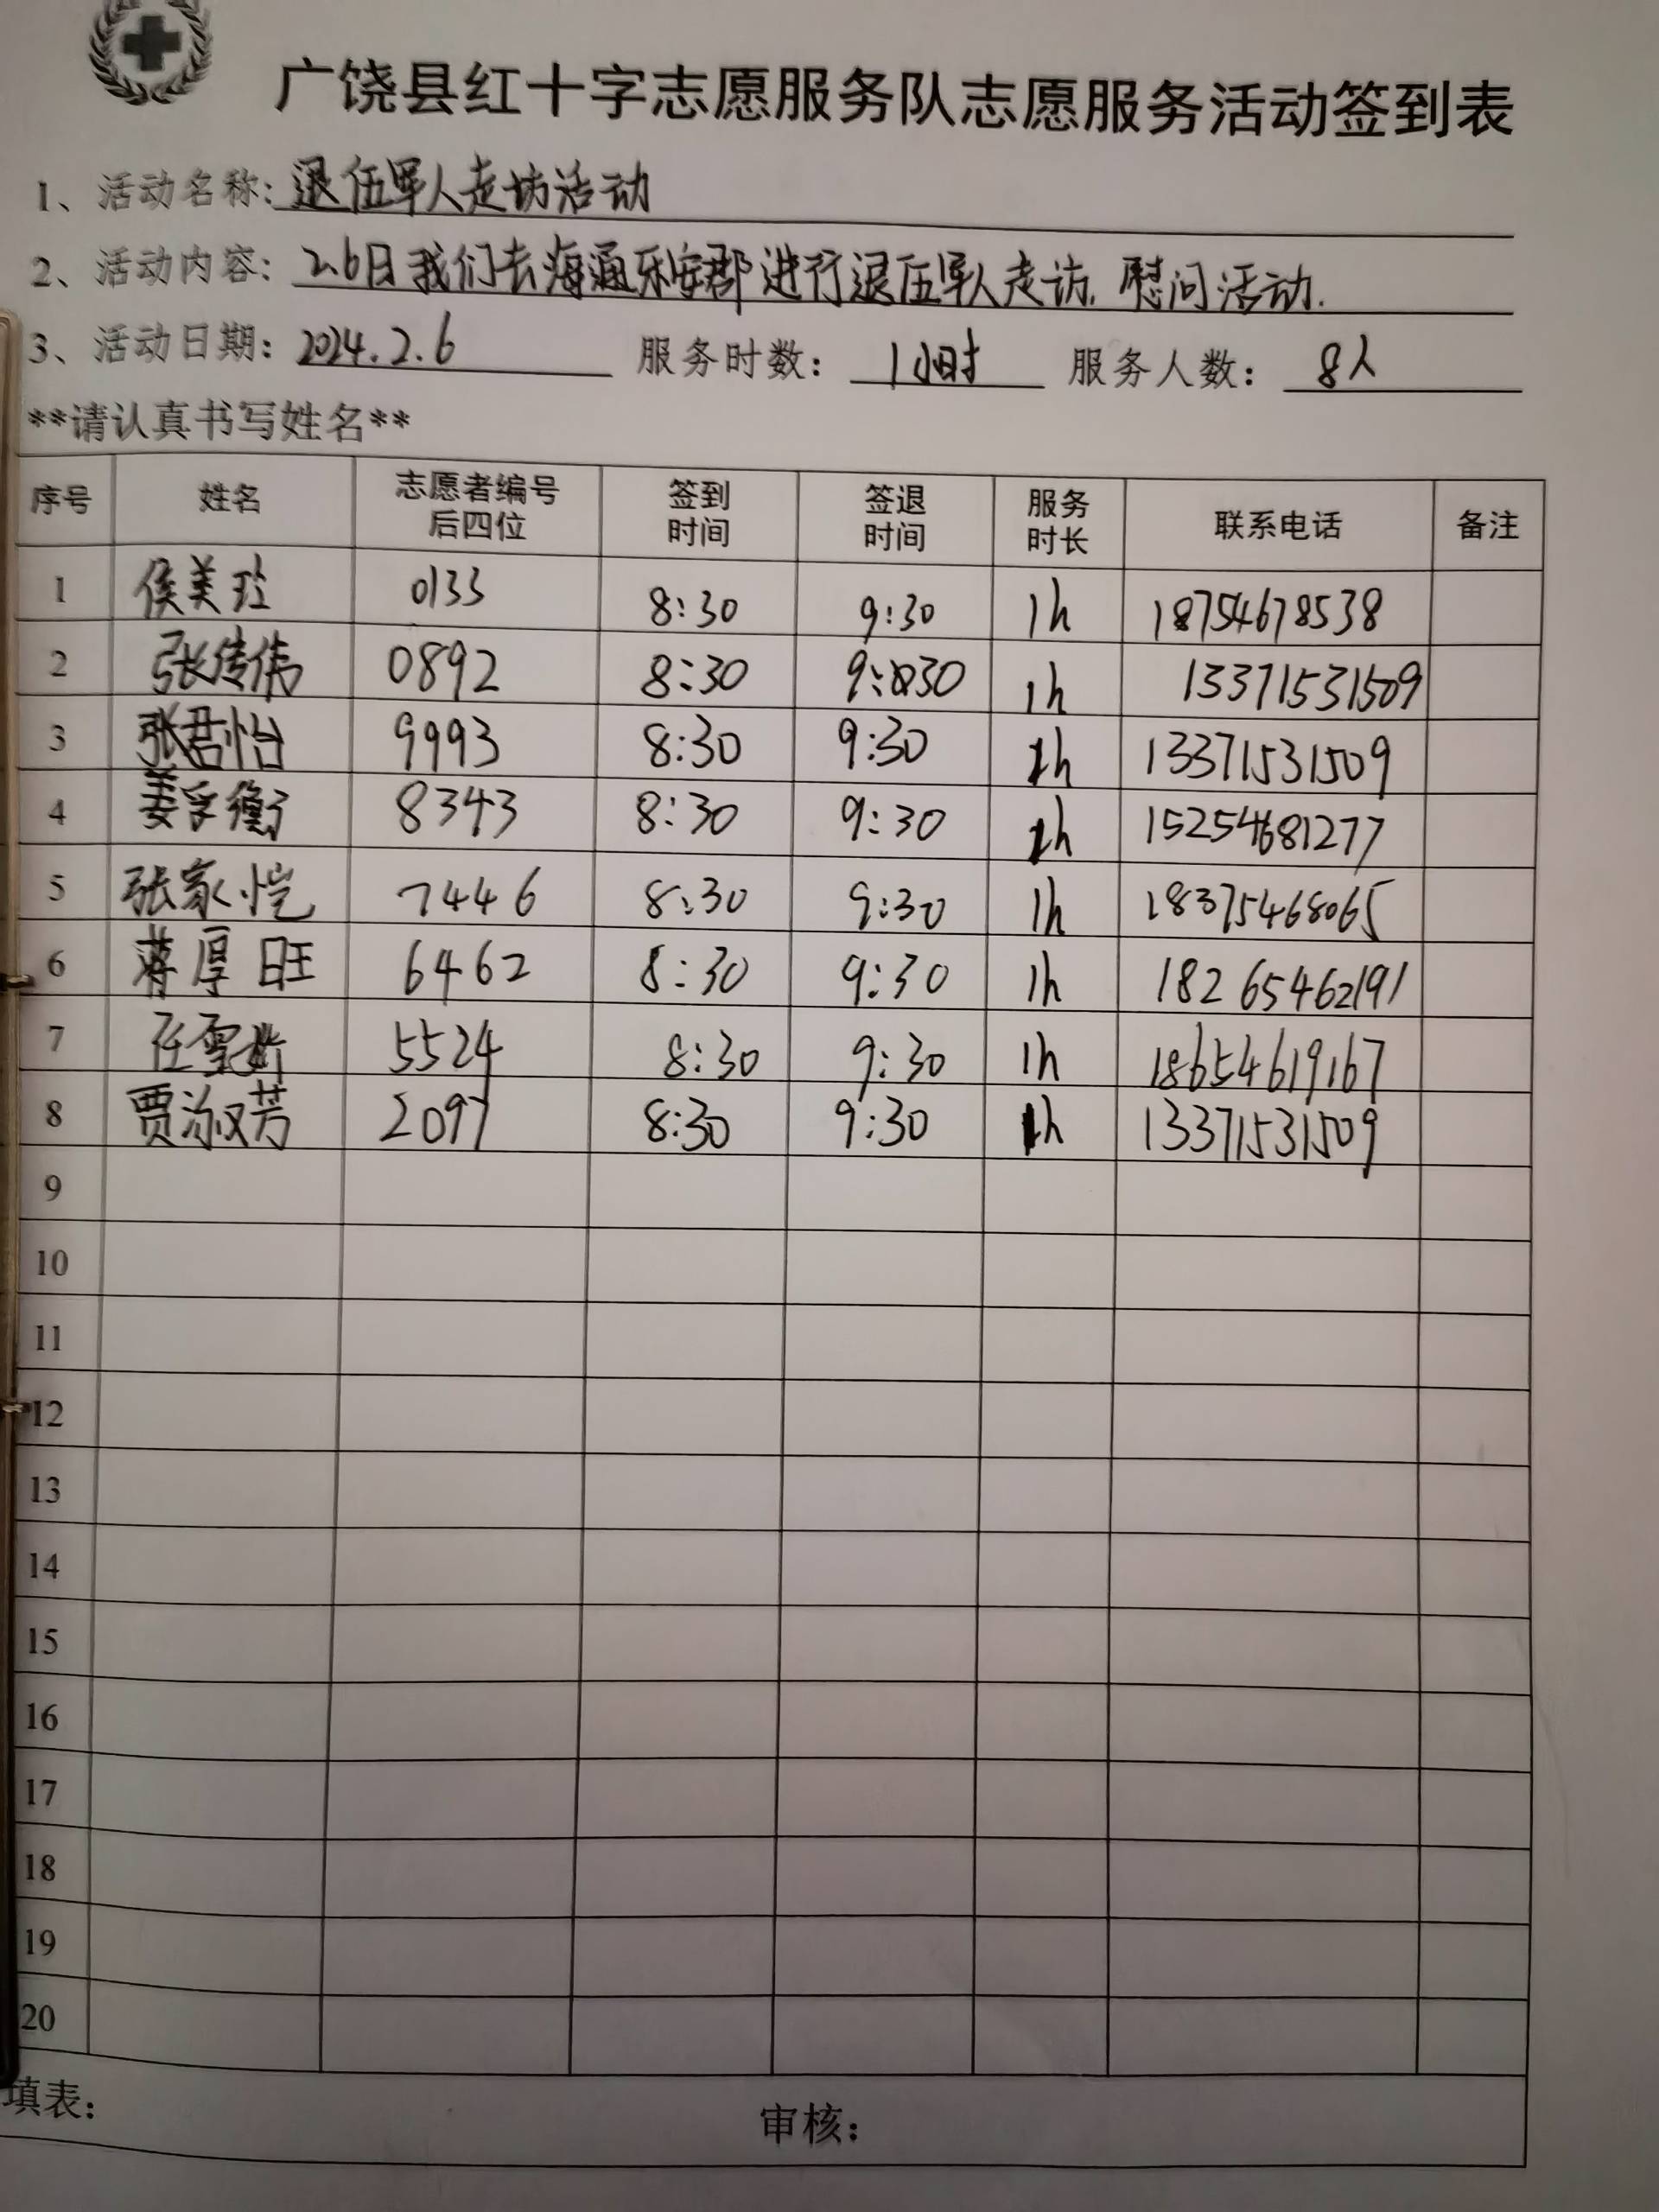 广饶县红十字志愿服务队志愿服务活动签到表
1、活动名称：退伍军人走访活动
2、活动内容：2.6日我们去海通乐安郡进行退伍军人走访.慰问活动.
3、活动日期：2024.2.6 服务时数：1小时 服务人数：8人
**请认真书写姓名**
序号 姓名 志愿者编号后四位 签到时间 签退时间 服务时长 联系电话 备注
1 侯美玲 0133 8:30 9:30 1h 18754678538
2 张传伟 0892 8:30 9:30 1h 13371531509
3 张君怡 9993 8:30 9:30 1h 13371531509
4 姜孚衡 8343 8:30 9:30 1h 15254681277
5 张家恺 7446 8:30 9:30 1h 18375468065
6 蒋厚旺 6462 8:30 9:30 1h 18265462191
7 任雪 5524 8:30 9:30 1h 18654619167
8 贾淑芳 2097 8:30 9:30 1h 13371531509
9
10
11
12
13
14
15
16
17
18
19
20
填表： 审核：